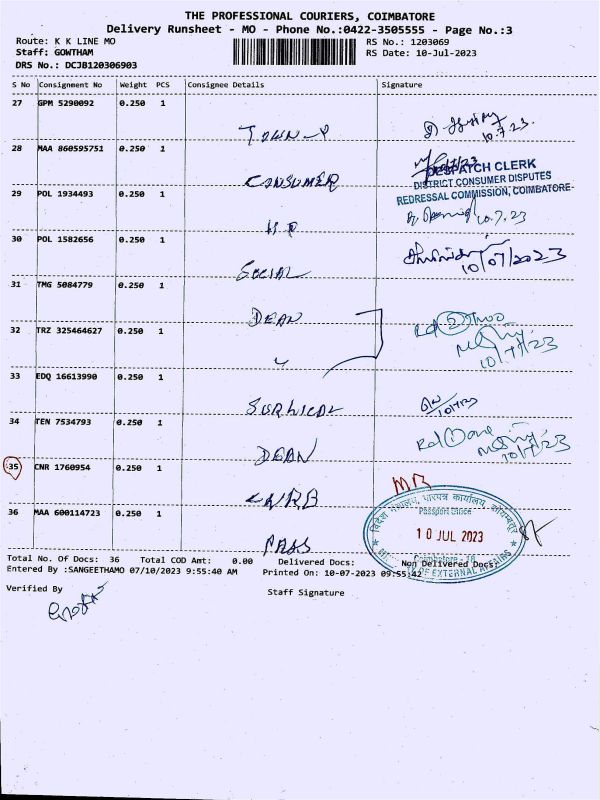 THE PROFESSIONAL COURIERS, COIMBATORE
Delivery Runsheet - MO - Phone No.:0422-3505555 - Page No.:3
Route: K K LINE MO
RS No.: 1203069
Staff: GOWTHAM
RS Date: 10-Jul-2023
DRS No.: DCJB120306903
S No Consignment No Weight PCS Consignee Details Signature
27 GPM 5290092 0.250 1
10.7.23.
28 MAA 860595751 0.250 1
CONSUMER
DESPATCH CLERK
DISTRICT CONSUMER DISPUTES
REDRESSAL COMMISSION, COIMBATORE-
29 POL 1934493 0.250 1
10.7.23
30 POL 1582656 0.250 1
SOCIAL
10/07/2023
31 TMG 5084779 0.250 1
DEAN
32 TRZ 325464627 0.250 1
10/7/23
33 EDQ 16613990 0.250 1
SURGICAL
10/7/23
34 TEN 7534793 0.250 1
DEAN
10/7/23
35 CNR 1760954 0.250 1
MB
36 MAA 600114723 0.250 1
PASS
विदेश मंत्रालय, पारपत्र कार्यालय, कोयम्बत्तूर
Passport Office
10 JUL 2023
Coimbatore - 18
OF EXTERNAL AFFAIRS
Total No. Of Docs: 36 Total COD Amt: 0.00 Delivered Docs: Non Delivered Docs:
Entered By :SANGEETHAMO 07/10/2023 9:55:40 AM Printed On: 10-07-2023 09:55:42
Verified By
Staff Signature